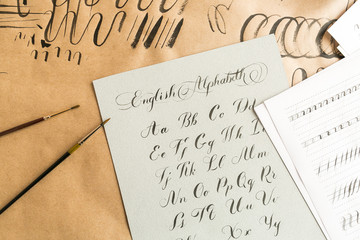 English Alphabeth
Aa Bb Cc Dd
Ee Ff Gg Hh
Ii Jj Kk Ll M
Nn Oo Pp Qq
Rr Ss Tt Uu
Vv Ww Xx
Yy Zz